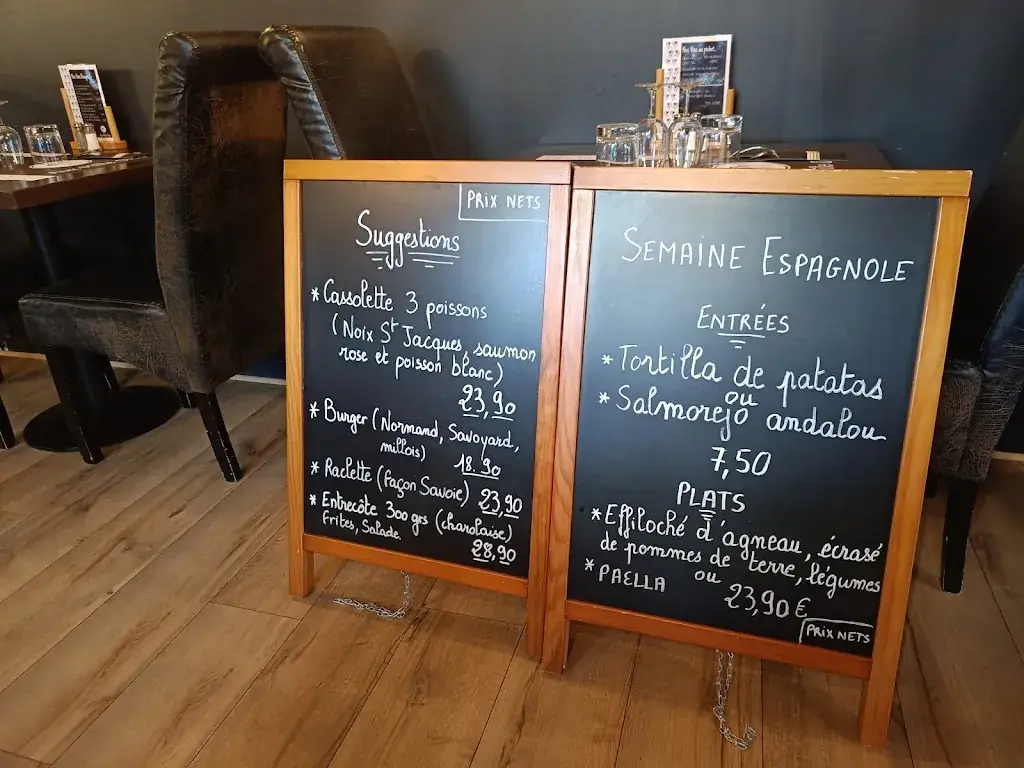 PRIX NETS
Suggestions
* Cassolette 3 poissons
(Noix St Jacques, saumon
rose et poisson blanc)
23,90
* Burger (Normand, Savoyard,
millois)
18.90
* Raclette (façon Savoie) 23,90
* Entrecôte 300 grs (charolaise)
Frites, Salade.
28,90
SEMAINE ESPAGNOLE
ENTRÉES
* Tortilla de patatas
ou
* Salmorejo andalou
7,50
PLATS
* Effiloché d'agneau, écrasé
de pommes de terre, légumes
ou
* PAELLA
23,90 €
PRIX NETS